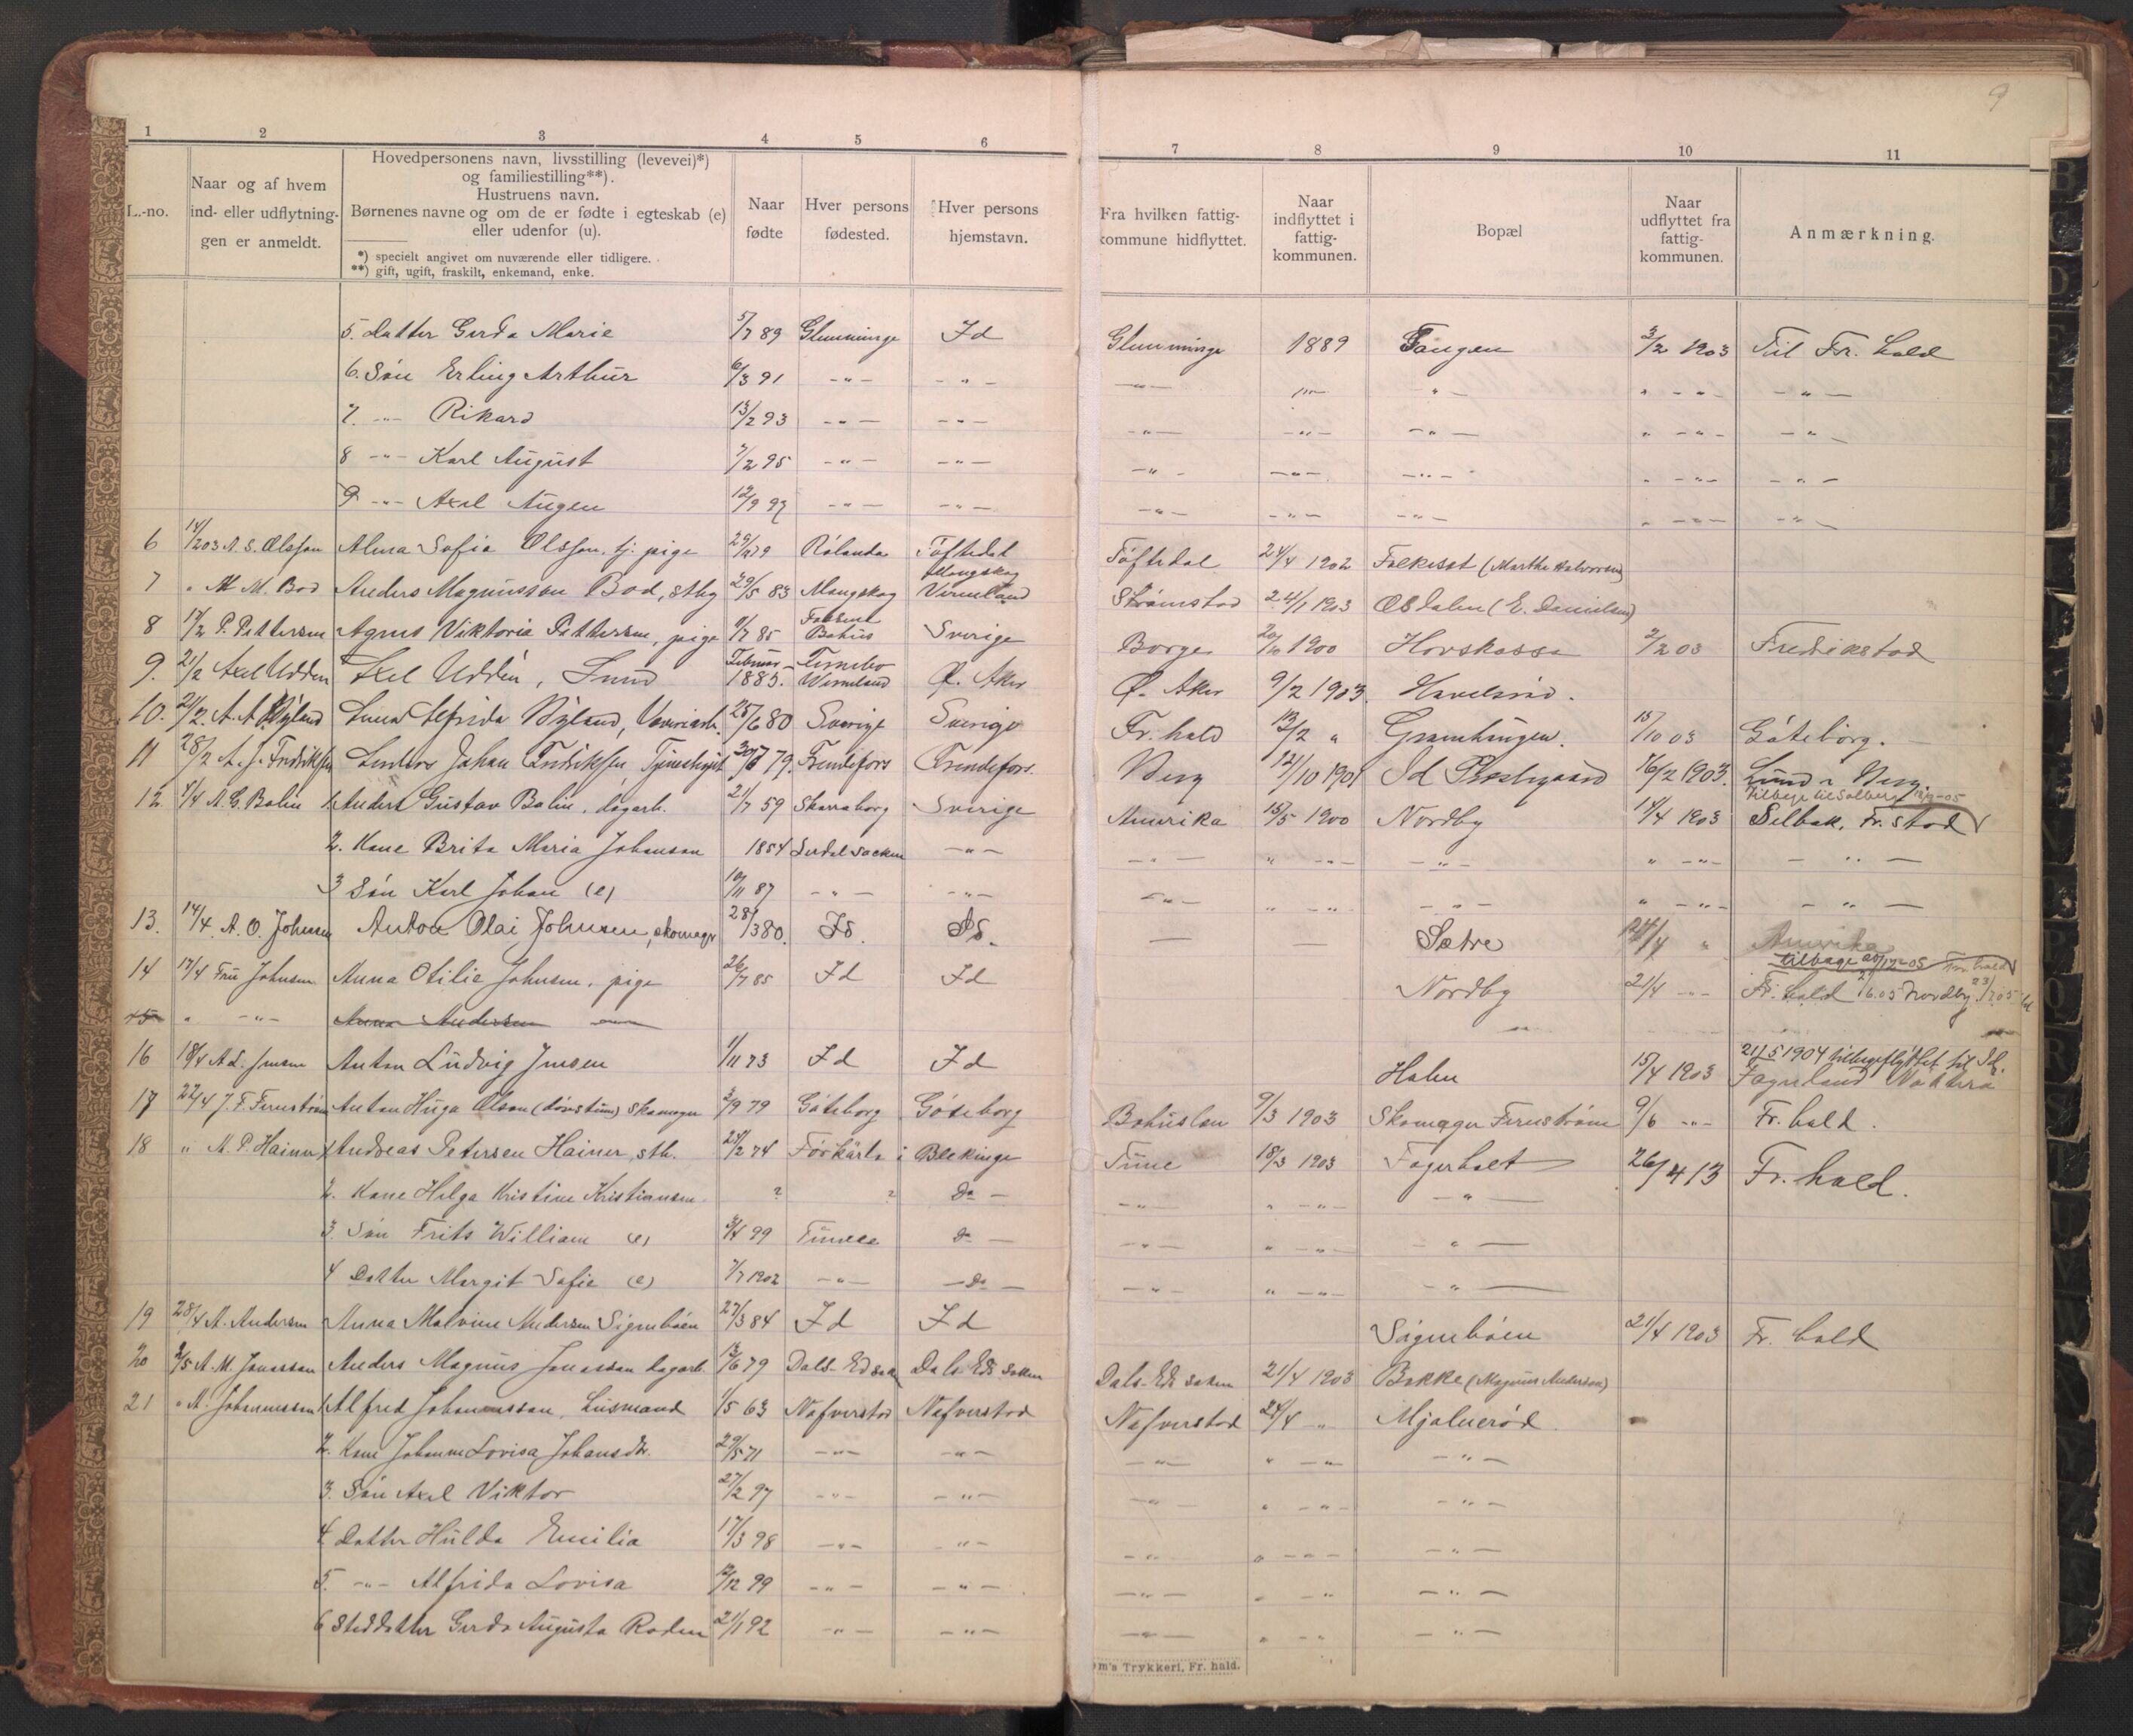 9
1 2 3 4 5 6 7 8 9 10 11
L.-no.
Naar og af hvem
ind- eller udflytnin-
gen er anmeldt.
Hovedpersonens navn, livsstilling (levevei)*)
og familiestilling**).
Hustruens navn.
Børnenes navne og om de er fødte i egteskab (e)
eller udenfor (u).
*) specielt angivet om nuværende eller tidligere.
**) gift, ugift, fraskilt, enkemand, enke.
Naar
fødte
Hver persons
fødested.
Hver persons
hjemstavn.
Fra hvilken fattig-
kommune hidflyttet.
Naar
indflyttet i
fattig-
kommunen.
Bopæl
Naar
udflyttet fra
fattig-
kommunen.
Anmærkning.
5. Datter Gerda Marie 5/7 89 Glumminge Id Glumminge 1889 Tangen 3/2 1903 Til Fr. hald
6. Søn Erling Arthur 6/3 91 -"- -"- -"- -"- -"- " -"- -"-
7. -"- Rikard 13/2 93 -"- -"- -"- -"- -"- " -"- -"-
8 -"- Karl August 7/2 95 -"- -"- -"- -"- -"- " -"- -"-
9 -"- Axel Augen 12/9 97 -"- -"- -"- -"- -"- " -"- -"-
6 14/2 03 A. S. Olsson Alma Sofia Olsson, tj. pige 29/ 79 Rölanda Töftedal Töftedal 24/4 1902 Folkesat (Marthe Halvorsen)
7 " A. M. Bod Anders Magnusson Bod, sthg 29/5 83 Mangskog Mangskog Vermland Strömstad 24/1 1903 (E. Danielsen)
8 17/2 P. Pettersen Agnes Viktoria Pettersen, pige 9/7 85 Bohus Sverige Borge 20/10 1900 Hovskassa 2/2 03 Fredrikstad
9. 21/2 Axel Uddén Axel Uddén, Smed Februar 1885. Wermland Ø. Aker Ø. Aker 9/2 1903
10. 21/2. A. A. Nyland Alfrida Nyland, 25/6 80 Sverige Sverige Fr. hald 13/2 " 15/10 03 Göteborg.
11 28/2 A. J. Fredriksen Anders Johan Fredriksen 30/ 79. Frendefors Frendefors. Berg 12/10 1901 Id Prestegaard 16/2 1903. Lund i Berg.
12. 1/4 A. G. Balin 1. Anders Gustav Balin, dagarb. 21/7 59 Skaraborg Sverige Amerika 15/5 1900 Nordby 14/4 1903 Tilbage til Solberg -05 Selbak, Fr. stad
2. Kone Brita Maria Johanson 1854 -"- -"- " -"- -"- " -"- -"-
3 Søn Karl Johan (e) 10/11 87 -"- -"- -"- " -"- -"- " -"- -"-
13. 14/4. A. O. Johnsen Anton Olai Johnsen, skomager 28/3 80. Id. Id. — — Sætre /4 " Amerika
14 17/4 Fru Johnsen Anna Otilie Johnsen, pige 26/7 85 Id Id Nordby 21/4 -"- tilbage -05 Fr. hald Fr. hald 6.05 Nordby
15 " -"- Anna Andersen
16 18/4 A L. Jensen Anton Ludvig Jensen 1/11 73 Id Id 15/4 1903 21/5 1904 tilbageflyttet til Id, Fagerland
17 22/4 J. F. Fernström Anton Hugo Olson (døvstum) skomager 3/9 79 Göteborg Göteborg Bohuslen 9/3 1903 Skomager Fernström 9/6 -"- Fr. hald.
18 " A. P. Hainer 1 Andreas Petersen Hainer, sth. 24/2 74 Förkärla i Blekinge Tune 18/3 1903 Fagerholt 26/4 13 Fr. hald.
2. Kone Helga Kristine Kristiansen ? ? Do — -"- " -"- -"-
3. Søn Frits William (e) 3/4 99 Tune Do — -"- " -"- -"-
4 Datter Margit Sofie (e) 7/7 1902 -"- -Do- -"- " -"- -"-
19 28/4 A. Andersen Anna Malvine Andersen Signebøen 27/3 84 Id Id Signebøen 21/4 1903 Fr. hald
20 2/5 A. M. Jonasson Anders Magnus Jonasson dagarb. 12/6 79 Dals Ed Dals Eds Soken Dals-Eds Soken 21/4 1903 Bakke (Magnus Anderson)
21 " A. Johannesson 1 Alfred Johannesson, Leismand 1/5 63 Nafverstad Nafverstad Nafverstad 24/4 " Mjølnerød.
2. Kone Johanne Lovisa Johansdtr. 29/5 71 -"- -"- -"- " -"- -"-
3. Søn Axel Viktor 27/2 97 -"- -"- -"- " -"- -"-
4 Datter Hulda Emilia 17/3 98 -"- -"- -"- " -"- -"-
5. -"- Alfrida Lovisa /12 99 -"- -"- -"- " -"- -"-
6 Steddatter Gerda Augusta Roden 21/1 92 -"- -"- -"- " -"- -"-
m's Trykkeri, Fr. hald.